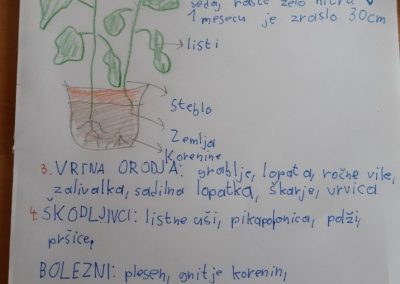 sedaj raste zelo hitro v
1 mesecu je zraslo 30cm
listi
steblo
Zemlja
Korenine
3. VRTNA ORODJA: grablje, lopata, ročne vile,
zalivalka, sadilna lopatka, škarje, vrvica
4. ŠKODLJIVCI: listne uši, pikapolonica, polži,
pršice,
BOLEZNI: plesen, gnitje korenin,